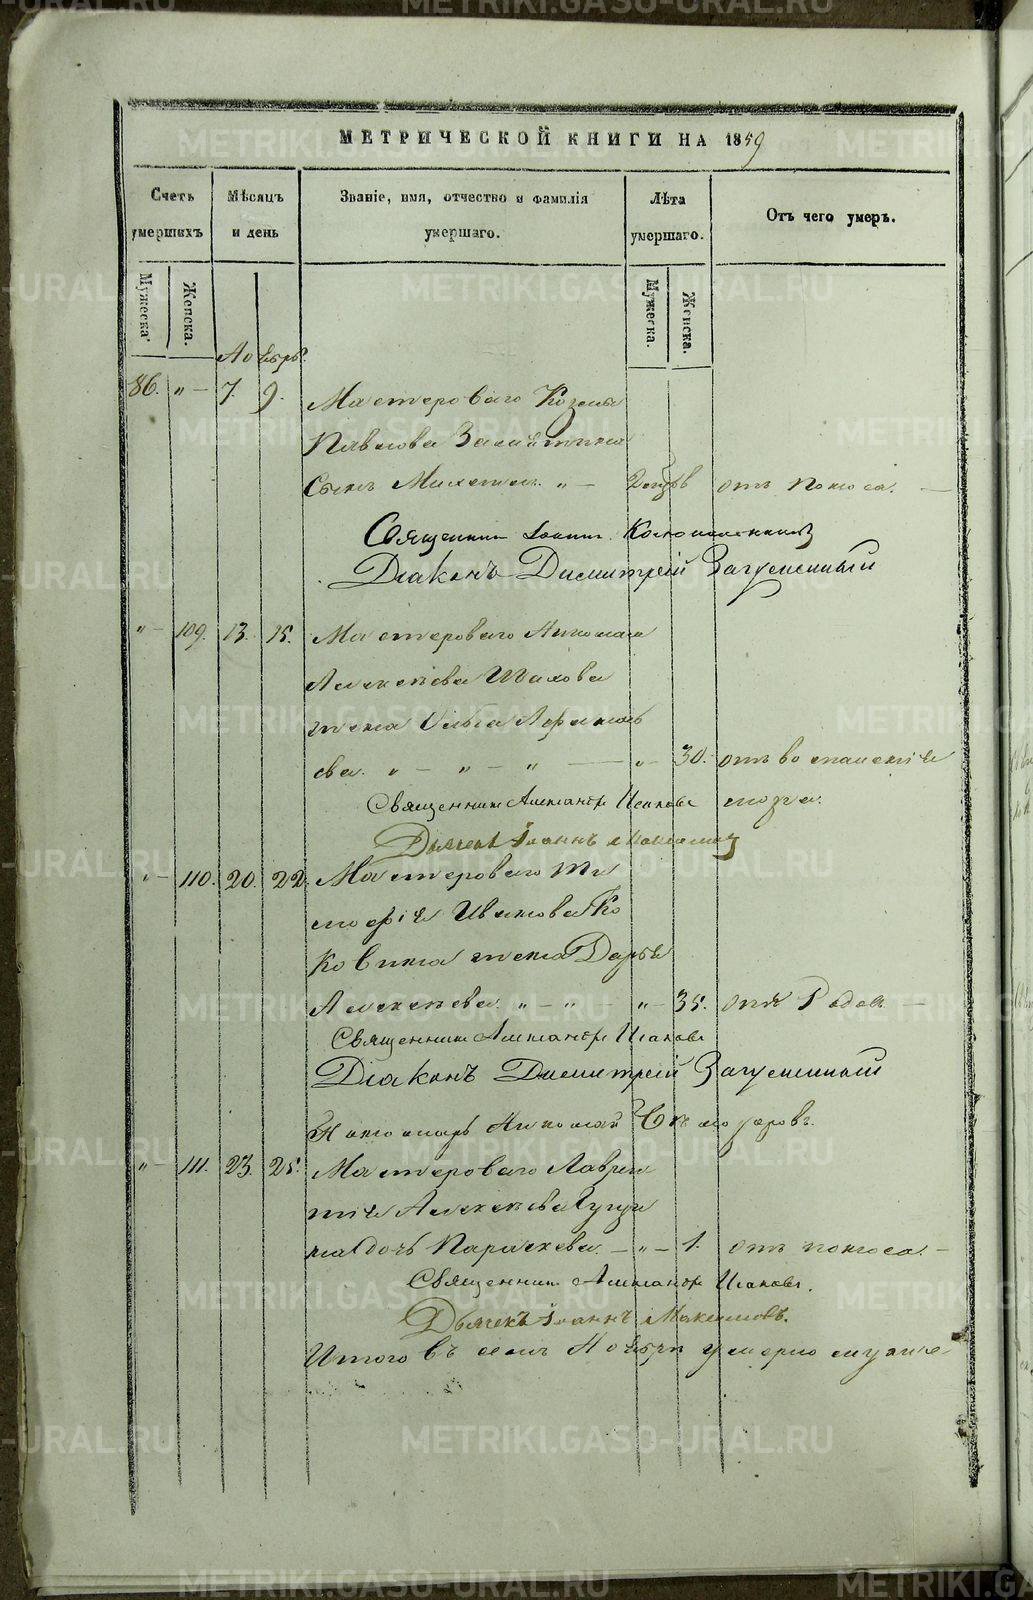 МЕТРИЧЕСКОЙ КНИГИ НА 1859
Счетъ умершихъ
Мѣсяцъ и день
Званіе, имя, отчество и фамилія умершаго.
Лѣта умершаго.
Отъ чего умеръ.
Мужеска.
Женска.
Мужеска.
Женска.
Ноябрь.
86. " — 7. 9. Мастероваго Козмы
Павлова
Сынъ " — отъ поноса. —
Священникъ Іоаннъ
Діаконъ Димитрій Загуменный
" — 109. 13. 15. Мастероваго Николая
Алексѣева Шахова
жена Ольга Афанась
ева. " — " — " — " — 30. отъ воспаленія
Священникъ Александръ Исаковъ мозга.
Дьячекъ Іоаннъ Максимовъ
" — 110. 20. 22. Мастероваго Ти
мофѣя Иванова Ко
ковина жена Дарья
Алексѣева. " — " — " — 35. отъ Родов. —
Священникъ Александръ Исаковъ
Діаконъ Димитрій Загуменный
Пономарь Николай
" — 111. 23. 25. Мастероваго Лаврен
тія Алексѣева
на дочь Параскева. — " — 1. отъ поноса. —
Священникъ Александръ Исаковъ.
Дьячекъ Іоаннъ Максимовъ.
Итого въ семъ Ноябрѣ умерло мужес-
METRIKI.GASO-URAL.RU